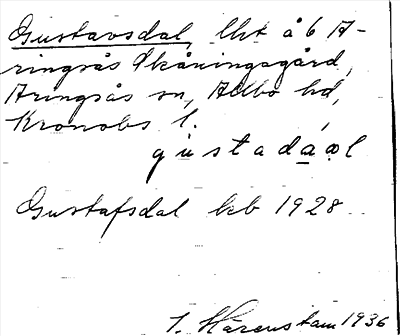 Gustavsdal, lht å 6 A-
ringsås Skåningsgård,
Aringsås sn, Allbo hd,
Kronobs l.
gustadáal
Gustafsdal kb 1928
I. Härenstam 1936